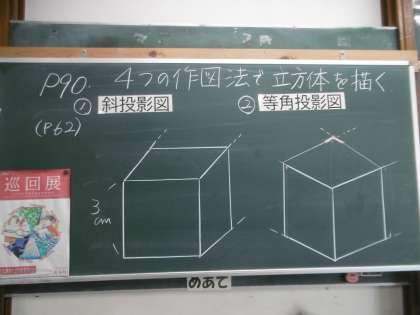 P90. 4つの作図法で立方体を描く
① 斜投影図
② 等角投影図
(P62)
3cm
巡回展
めあて